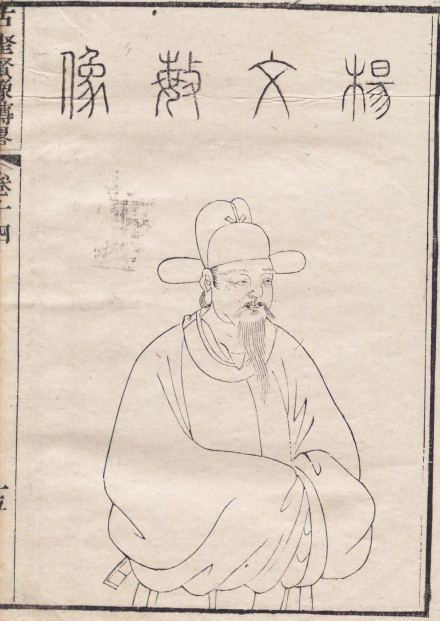 楊文敏像
古聖賢像傳略
卷十四
十五